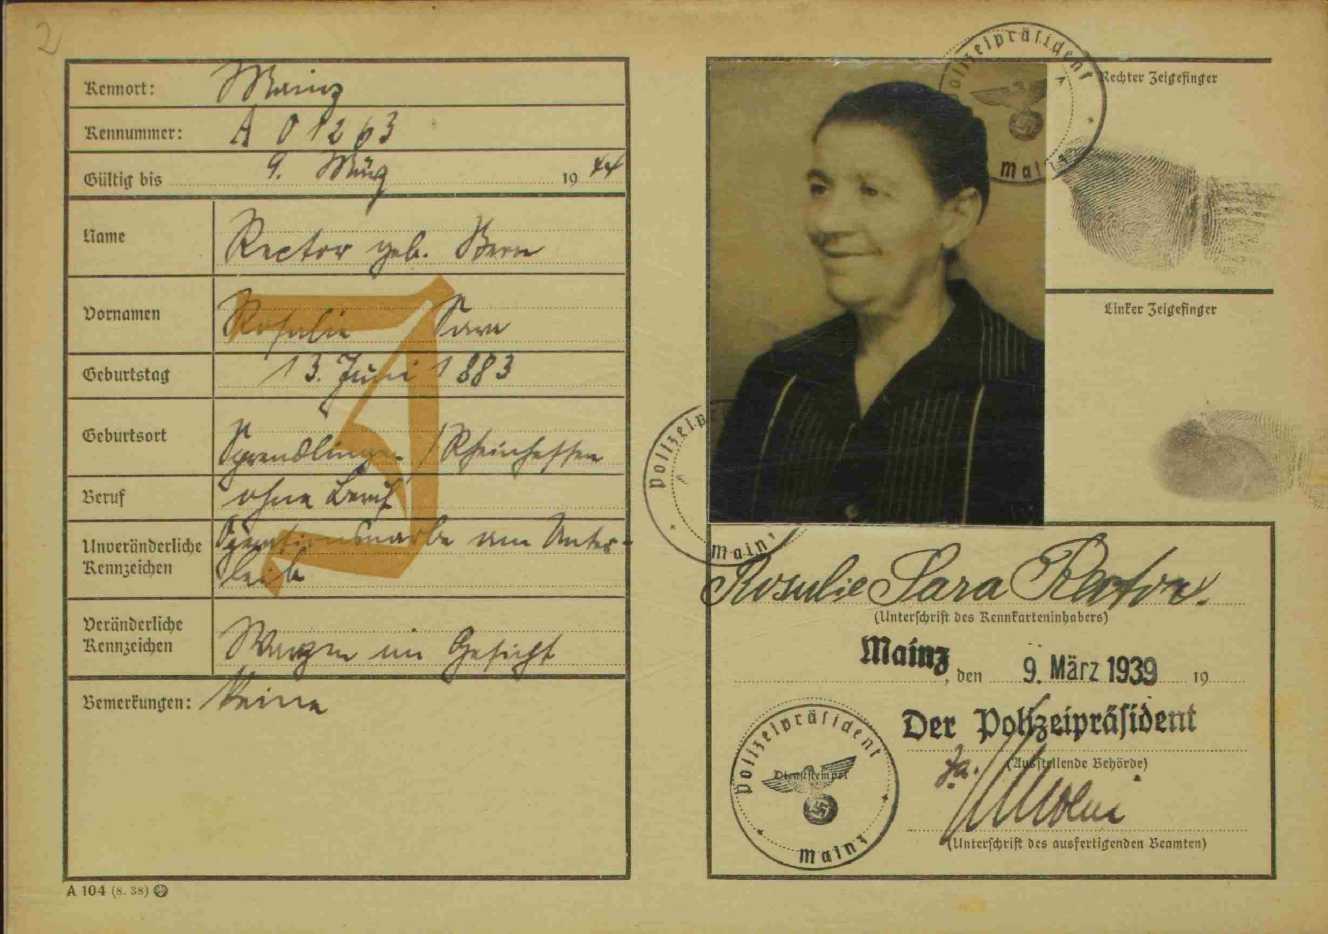 2
Kennort: Mainz
Kennummer: A 01263
Gültig bis 9. März 1944
Name Rector geb. Bern
Vornamen Rosalie Sara
Geburtstag 13. Juni 1883
Geburtsort Sprendlingen / Rheinhessen
Beruf ohne Beruf
Unveränderliche Kennzeichen Operationsnarbe am Unter-
leib
Veränderliche Kennzeichen Warzen im Gesicht
Bemerkungen: Keine
J
A 104 (8. 38)
Polizeipräsident
Mainz
Rechter Zeigefinger
Linker Zeigefinger
Polizeip
Mainz
Rosalie Sara Rector.
(Unterschrift des Kennkarteninhabers)
Mainz, den 9. März 1939 19
Der Polizeipräsident
(Ausstellende Behörde)
(Unterschrift des ausfertigenden Beamten)
Polizeipräsident
Dienststempel
Mainz